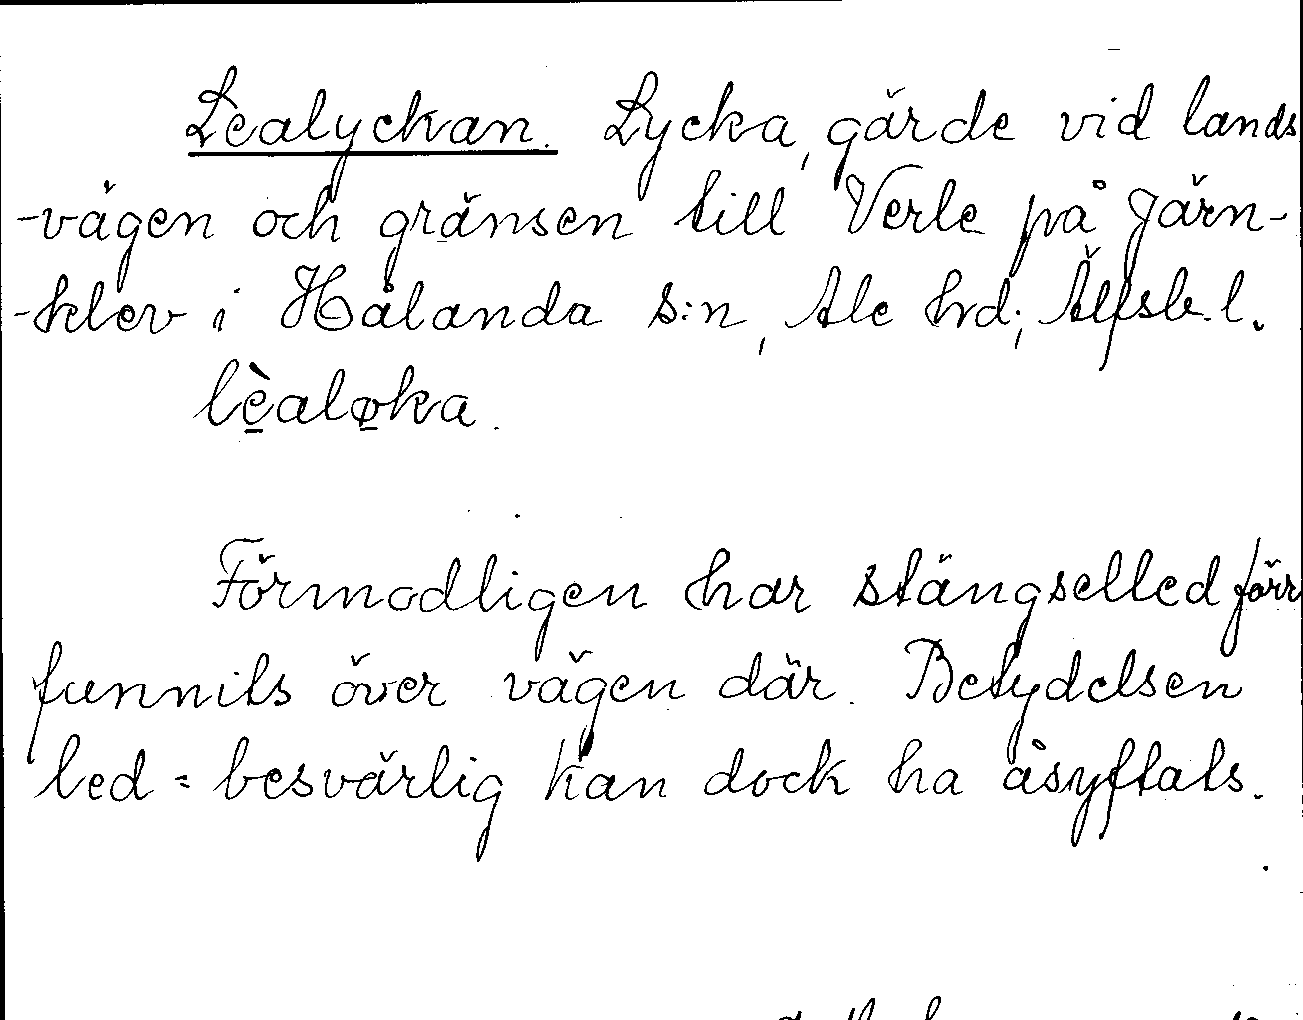 Lealyckan. Lycka, gärde vid lands
-vägen och gränsen till Verle på Järn-
-klev i Hålanda s:n, Ale hrd; Älfsb. l.
lèaløka.
Förmodligen har stängselled förr
funnits över vägen där. Betydelsen
led = besvärlig kan dock ha åsyftats.